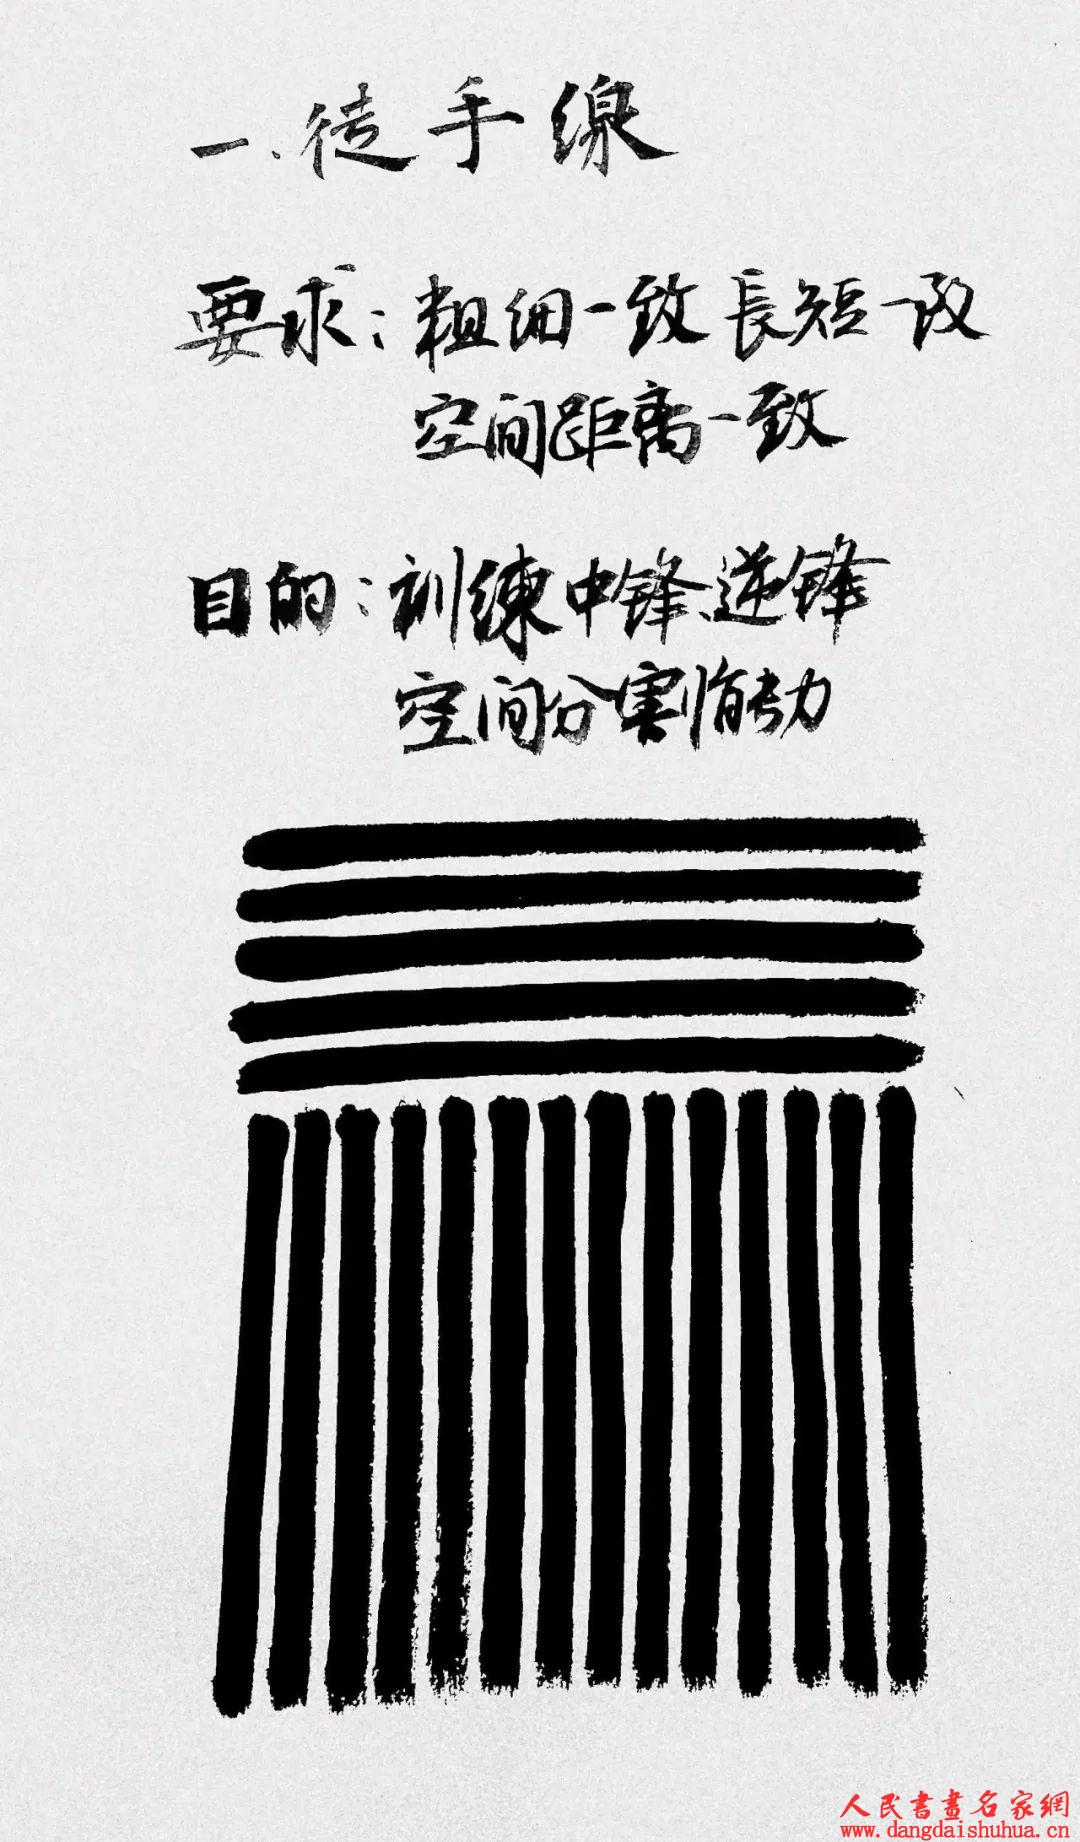 一、徒手線
要求：粗细一致長短一致
空间距离一致
目的：训練中锋、逆锋
空间分割能力
人民書畫名家網
www.dangdaishuhua.cn